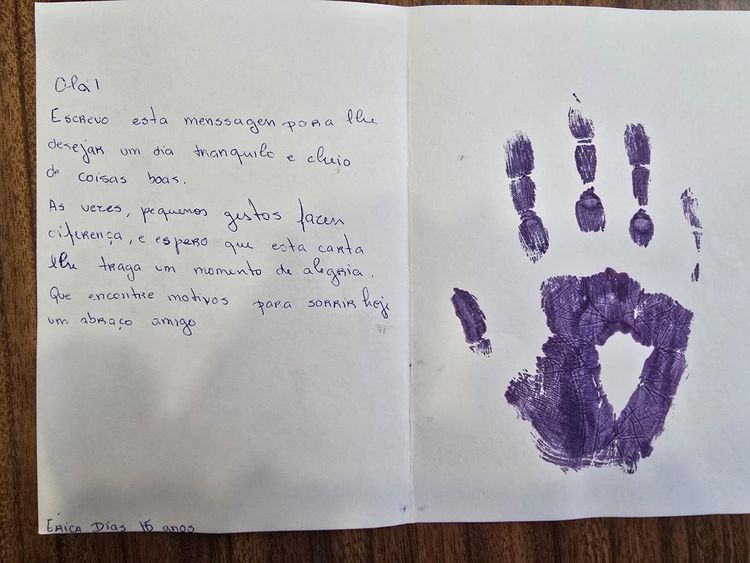 Olá!
Escrevo esta menssagem para lhe
desejar um dia tranquilo e cheio
de coisas boas.
As vezes, pequenos gestos fazem
diferença, e espero que esta carta
lhe traga um momento de alegria.
Que encontre motivos para sorrir hoje
um abraço amigo
Erica Dias 16 anos